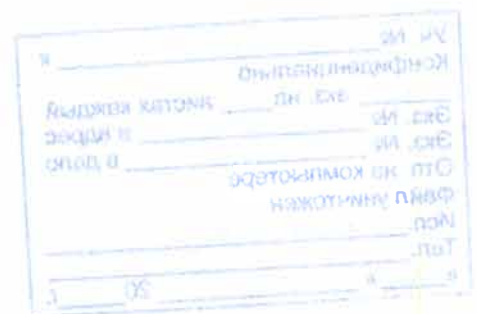 Уч. № ________ к
Конфиденциально
________ экз. на ____ листах каждый
Экз. № ________ в адрес
Экз. № ________ в дело
Отп. на компьютере
Файл уничтожен
Исп. ________
Тел. ________
"____" ________ 20____ г.